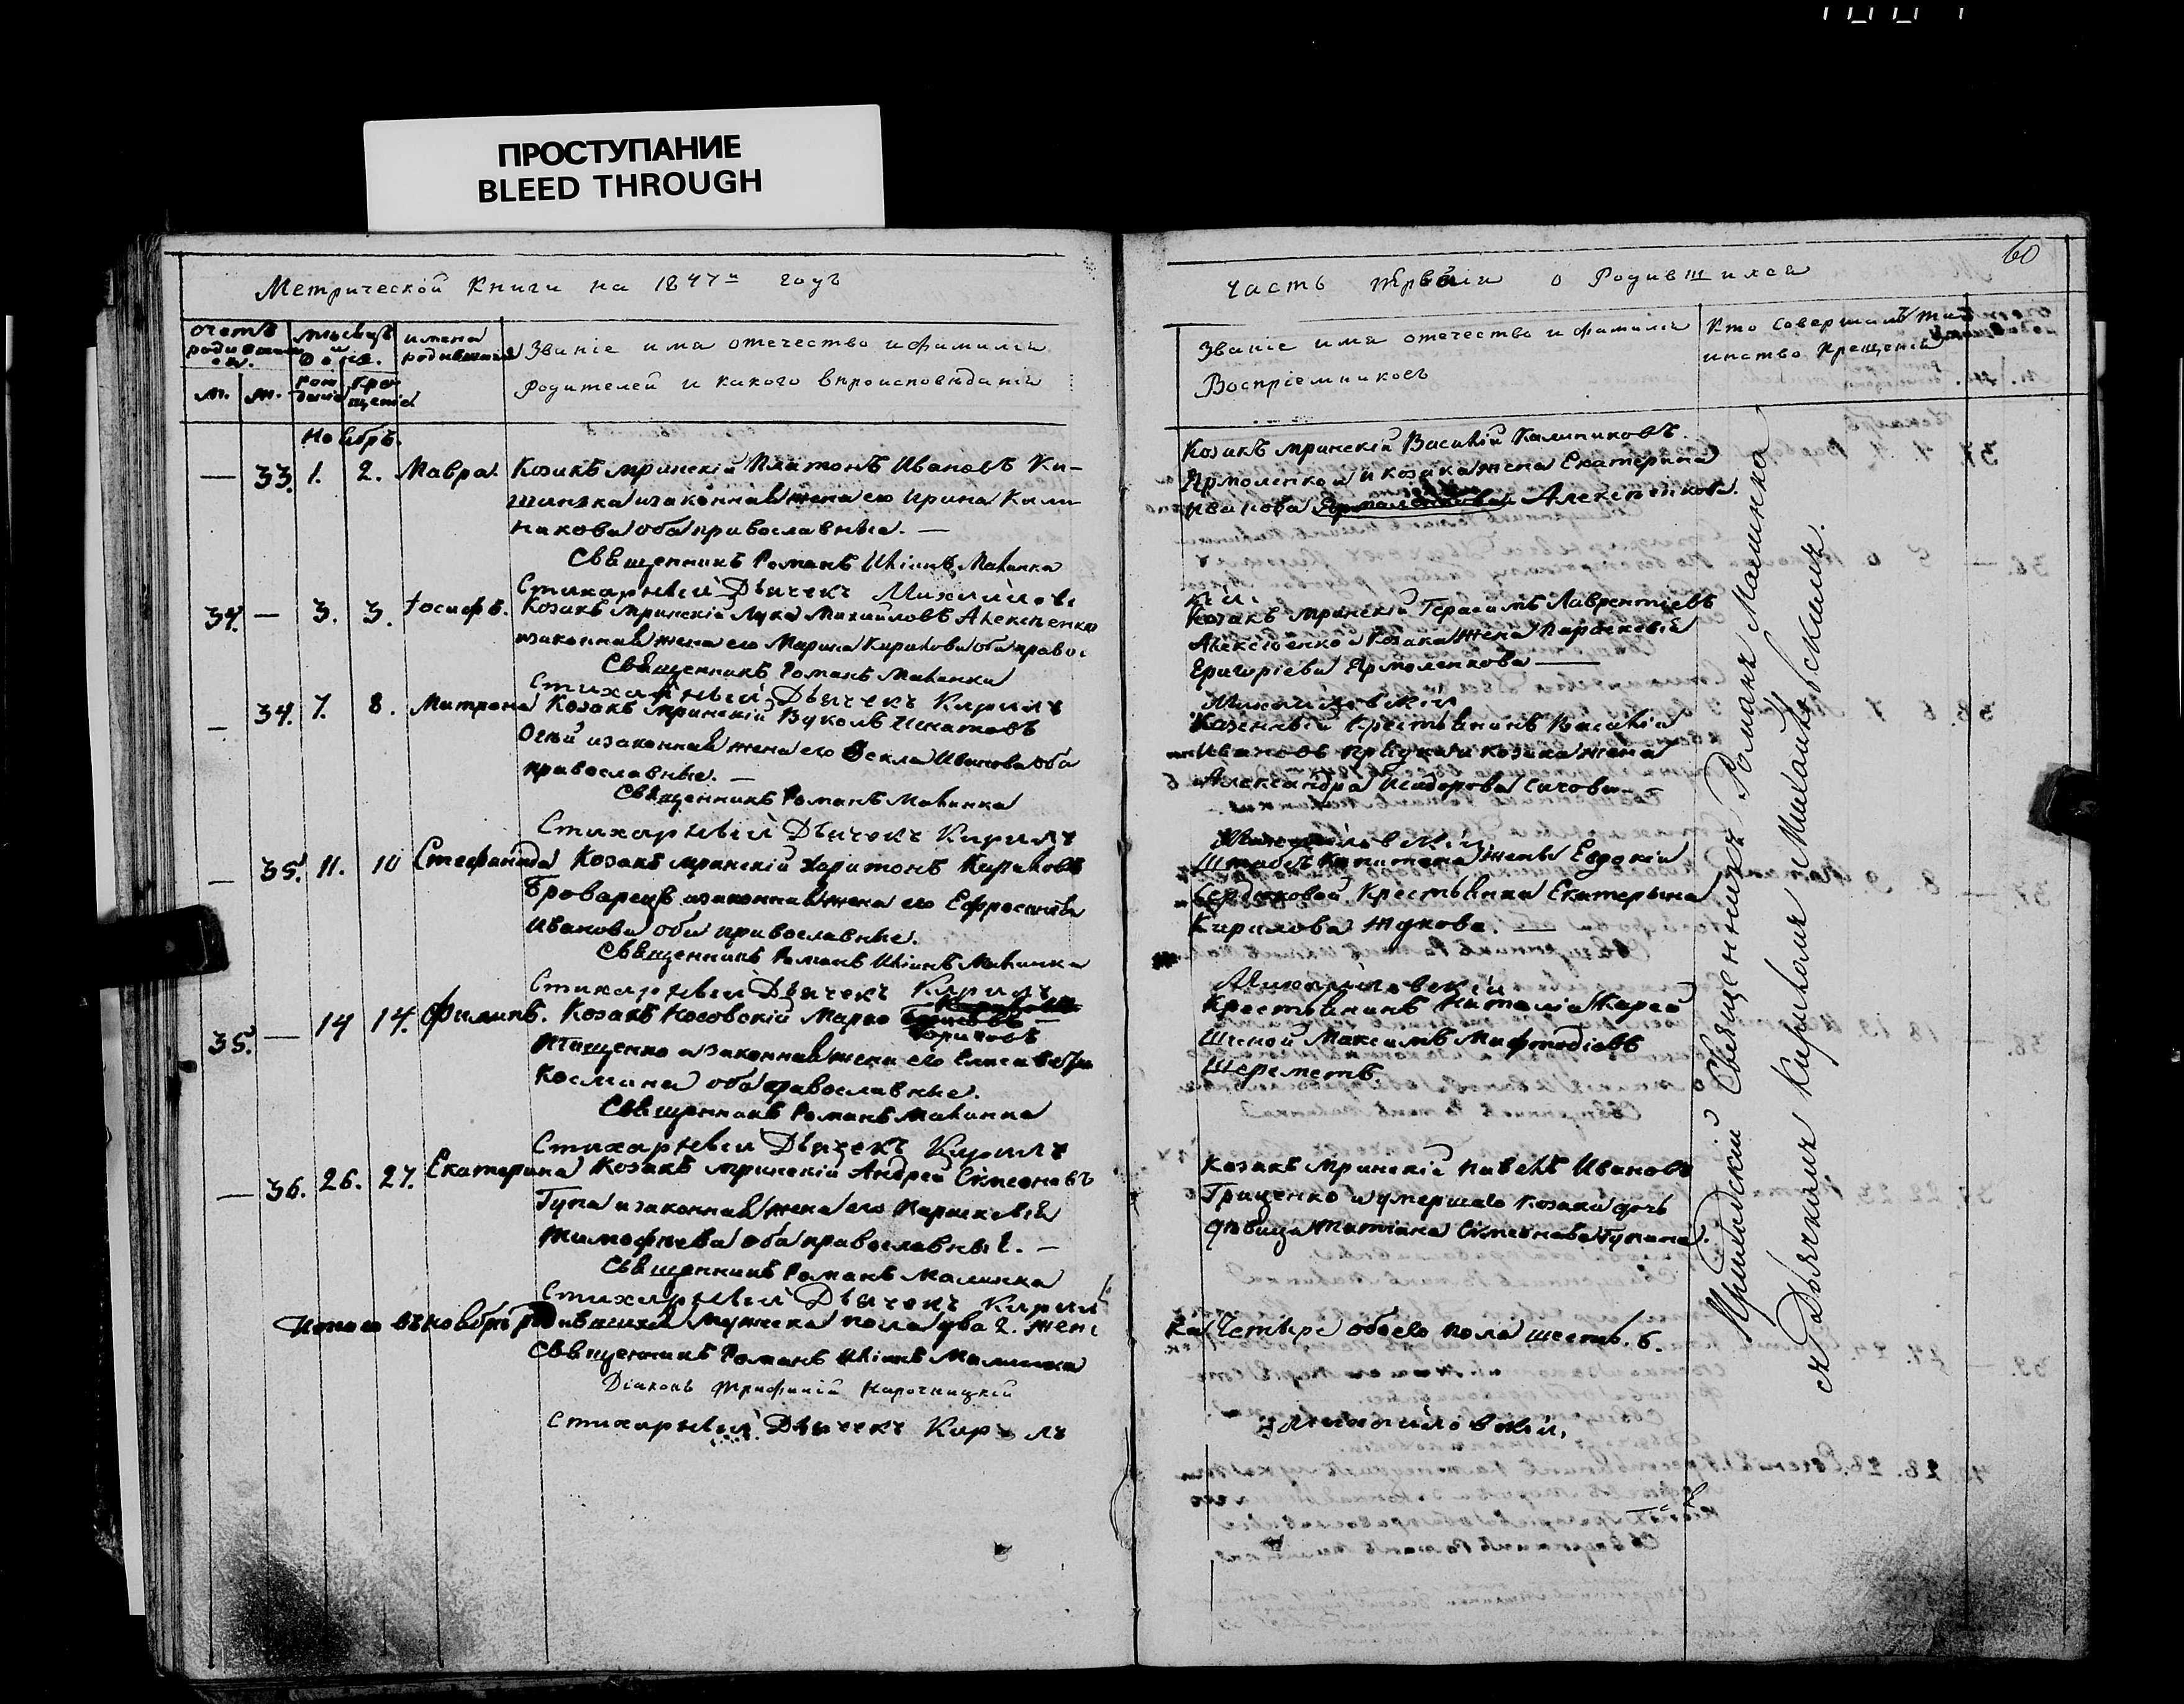 ПРОСТУПАНИЕ
BLEED THROUGH
60
Метрической Книги на 1847й годъ
счетъ родившихся.
мѣсяцъ и день.
имена родившихся
Званіе имя отечество и фамилія
родителей и какого вѣроисповѣданія
м. ж. рожденія крещенія
Ноябрь.
— 33. 1. 2. Мавра. Козакъ мринскій Платонъ Ивановъ Ки-
шинска изаконная жена его Ирина Кали-
никова оба православные. —
Священникъ Романъ Иліинъ Малинка
Стихарный Дьячекъ Михайловс
34. — 3. 3. Іосифъ. Козакъ мринскій Лука Михайловъ Алексіенко
изаконная жена его Марина Кирилова оба правос
Священникъ Романъ Малинка
Стихарный Дьячекъ Кирилъ
— 34. 7. 8. Матрона Козакъ мринскій Вуколъ Игнатовъ
изаконная жена его Ѳекла Иванова оба
православные. —
Священникъ Романъ Малинка
Стихарный Дьячекъ Кирилъ
— 35. 11. 10 Стефанида Козакъ мринскій Харитонъ Кириловъ
Броварецъ изаконная жена его Ефросинія
Иванова оба православные.
Священникъ Романъ Иліинъ Малинка
Стихарный Дьячекъ Кирилъ
35. — 14 14. Филипъ. Козакъ Носовскій Марко
изаконная жена его Елисавета
Космина оба православные.
Священникъ Романъ Малинка
Стихарный Дьячекъ Кирилъ
— 36. 26. 27. Екатерина Козакъ мринскій Андрей Симеоновъ
Гупа изаконная жена его Параскевія
Тимофѣева оба православные. —
Священникъ Романъ Малинка
Стихарный Дьячекъ Кирил
Итого въ ноябрѣ родившихся мужеска пола два 2. женс
Священникъ Романъ Иліинъ Малинка
Діаконъ Трифилій Нарочницкій
Стихарный Дьячекъ Кирилъ
Часть Первая о Родившихся
Званіе имя отечество и фамилія
Воспріемниковъ
Кто совершалъ таинство крещенія
Козакъ мринскій Василій Калиниковъ
Ярмоленко и козака жена Екатерина
Иванова Алексіенкова.
кій.
Козакъ мринскій Герасимъ Лаврентіевъ
Алексіенко и козака жена Параскевія
Григоріева Ярмоленкова —
Михайловскій
Казенный крестьянинъ Василій
Ивановъ и козака жена
Александра Исидорова Сичова —
Михайловскій
Штабсъ Капитана жены Евдокіи
Сердюковой Крестьянка Екатерина
Кирилова Жукова. —
Михайловскій
Крестьянинъ Наталіи
Максимъ Мифодіевъ
Шереметъ.
Козакъ мринскій Павелъ Ивановъ
Гриценко и умершаго козака дочь
дѣвица Татіана Симеонова Гупина.
ка Четыре обоего пола шесть. 6.
Михайловскій.
Приходскій Священникъ Романъ Малинка
съ Дьячкомъ Кириломъ Михайловскимъ.